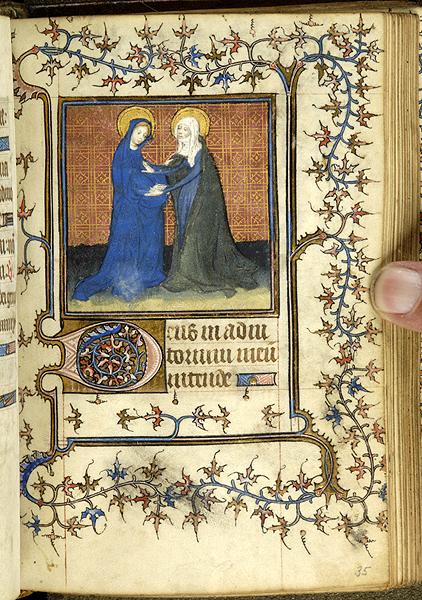 Deus in adiu
torium meu
intende
35